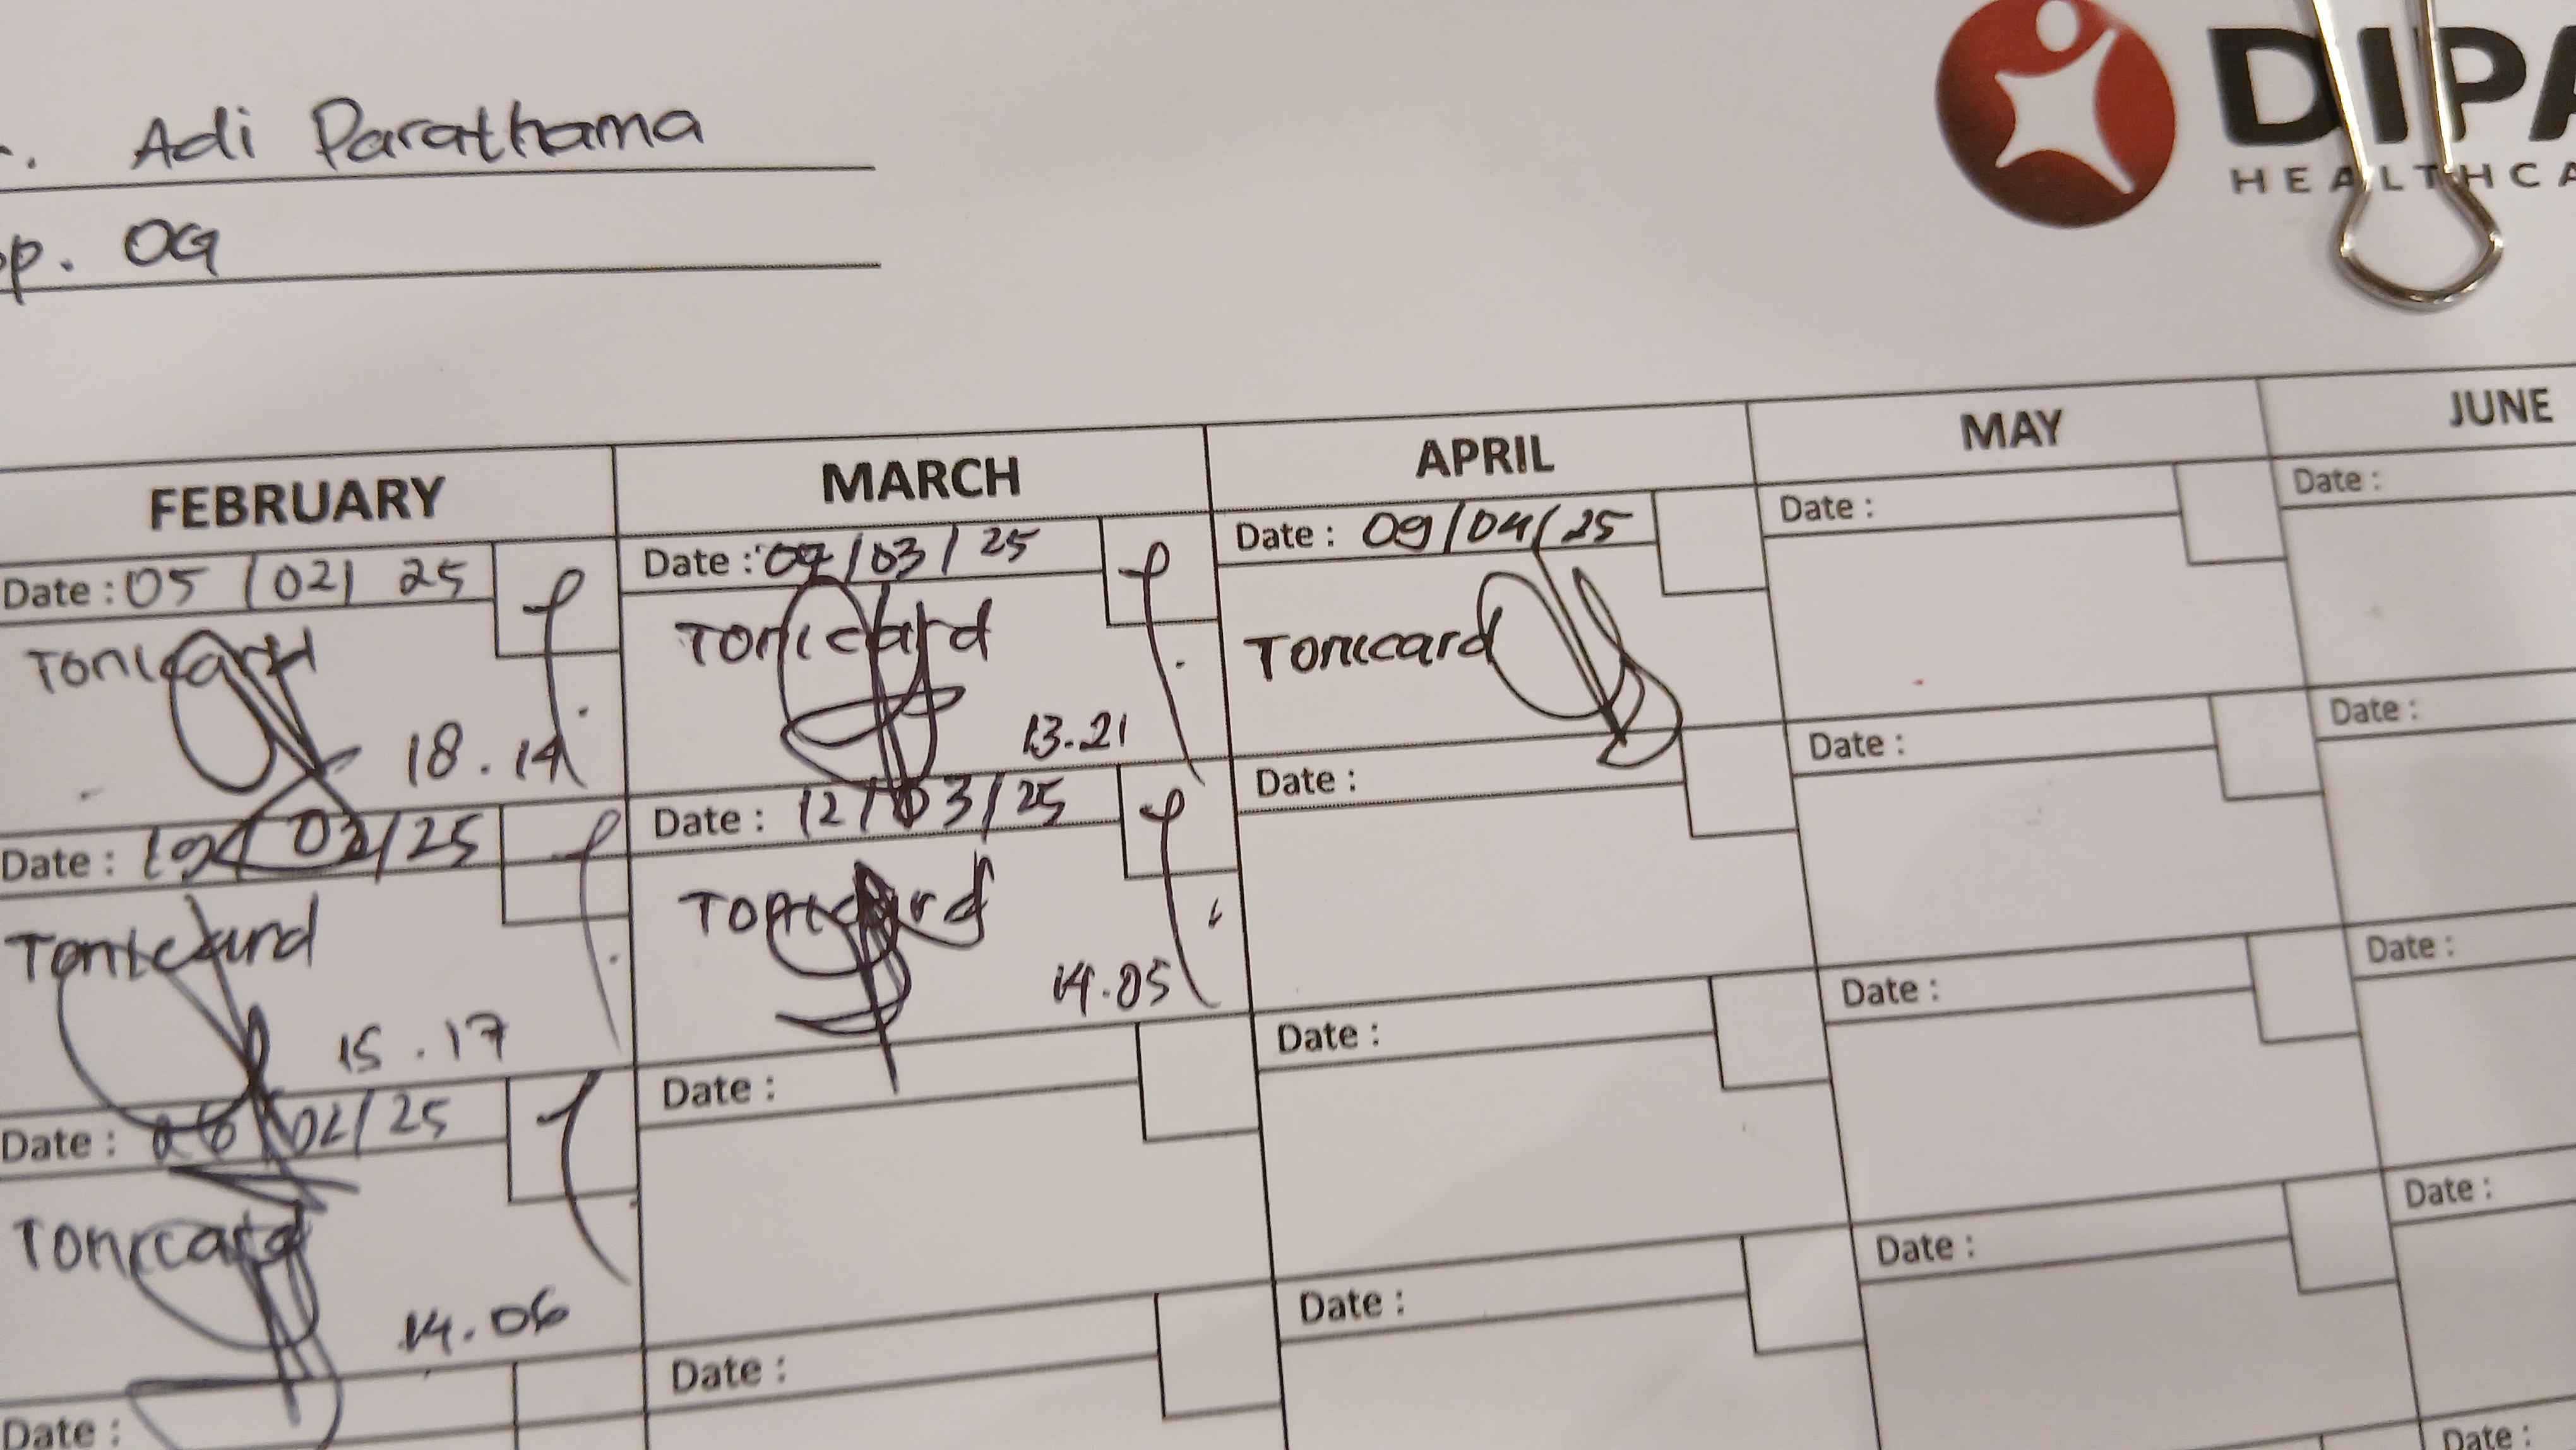 Adi Parathama
OG
DIPA
HEALTHCA
FEBRUARY
Date : 05 / 02 / 25
Tonicard
18.14
Date : 19 / 02 / 25
Tonickard
15.17
Date : 26 / 02 / 25
Tonicard
14.06
Date :
MARCH
Date : / 03 / 25
Tonicard
13.21
Date : 12 / 03 / 25
Tonicard
14.05
Date :
Date :
APRIL
Date : 09 / 04 / 25
Tonicard
Date :
Date :
Date :
MAY
Date :
Date :
Date :
Date :
JUNE
Date :
Date :
Date :
Date :
Date :